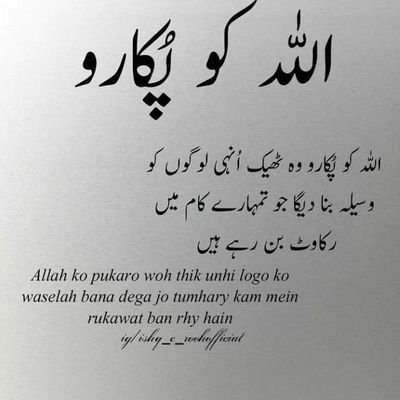 اللہ کو پُکارو
اللہ کو پُکارو وہ ٹھیک اُنہی لوگوں کو
وسیلہ بنا دیگا جو تمہارے کام میں
رکاوٹ بن رہے ہیں
Allah ko pukaro woh thik unhi logo ko
waselah bana dega jo tumhary kam mein
rukawat ban rhy hain
ig/ishq_e_roohofficial